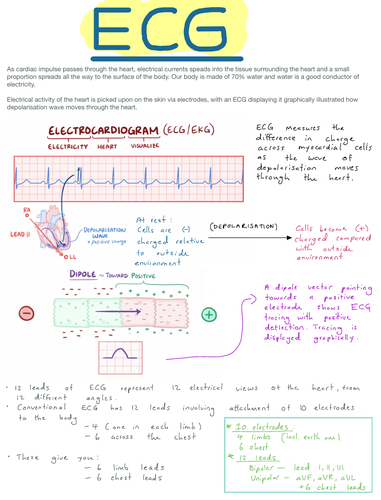 ECG
As cardiac impulse passes through the heart, electrical currents speads into the tissue surrounding the heart and a small
proportion spreads all the way to the surface of the body. Our body is made of 70% water and water is a good conductor of
electricity.
Electrical activity of the heart is picked upon on the skin via electrodes, with an ECG displaying it graphically illustrated how
depolarisation wave moves through the heart.
ELECTROCARDIOGRAM (ECG/EKG)
ELECTRICITY HEART VISUALIZE
ECG measures the
difference in charge
across myocardial cells
as the wave of
depolarisation moves
through the heart.
RA
LEAD II
DEPOLARISATION
WAVE
+ positive charge
LL
At rest:
Cells are (-)
charged relative
to outside
environment
(DEPOLARISATION)
Cells become (+)
charged compared
with outside
environment
DIPOLE ~ TOWARD POSITIVE
-
+
A dipole vector pointing
towards a positive
electrode shows ECG
tracing with positive
deflection. Tracing is
displayed graphically.
• 12 leads of ECG represent 12 electrical views of the heart, from
12 different angles.
• Conventional ECG has 12 leads involving attachment of 10 electrodes
to the body
- 4 (one in each limb)
- 6 across the chest
• These give you:
- 6 limb leads
- 6 chest leads
* 10 electrodes
4 limbs (incl. earth one)
6 chest
* 12 leads
Bipolar - lead I, II, III
Unipolar - aVF, aVR, aVL
+6 chest leads